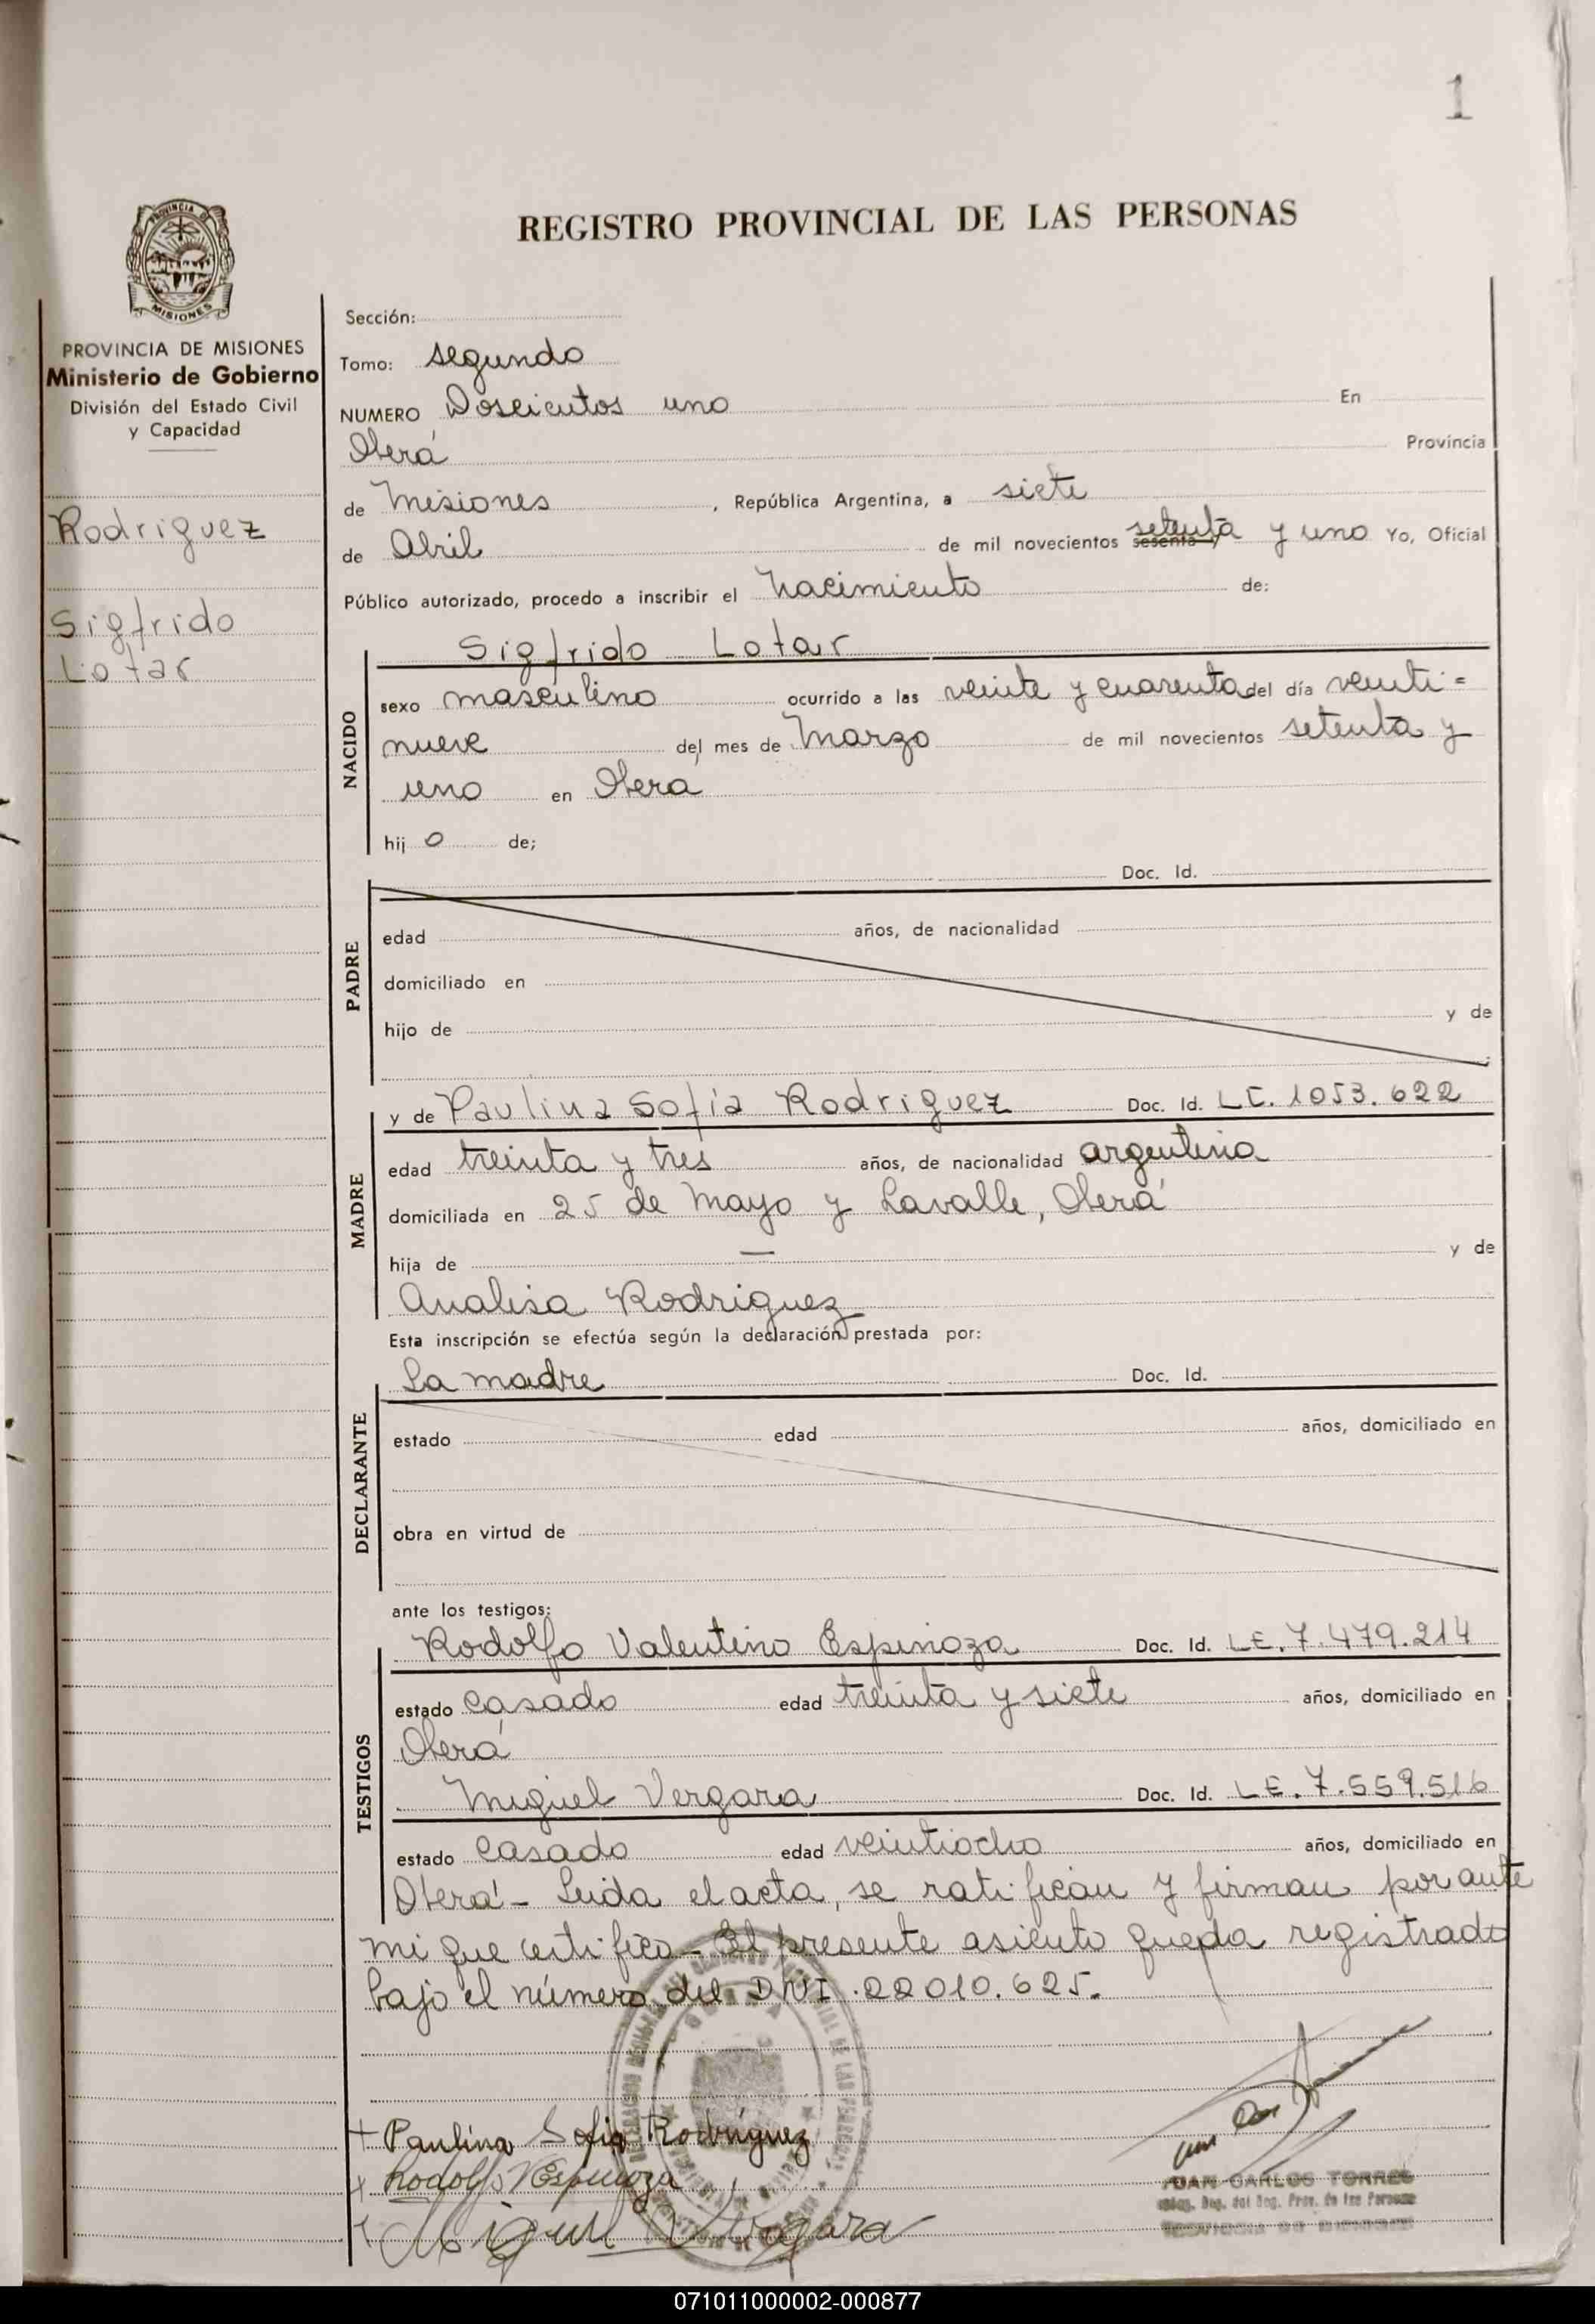 1
REGISTRO PROVINCIAL DE LAS PERSONAS
PROVINCIA DE
MISIONES
PROVINCIA DE MISIONES
Ministerio de Gobierno
División del Estado Civil
y Capacidad
Rodriguez
Sigfrido
Lotar
Sección:
Tomo: segundo
NUMERO Doscientos uno En
Oberá Provincia
de Misiones, República Argentina, a siete
de Abril de mil novecientos sesenta y setenta y uno Yo, Oficial
Público autorizado, procedo a inscribir el Nacimiento de:
Sigfrido Lotar
NACIDO
sexo masculino ocurrido a las veinte y cuarenta del día veinti=
nueve del mes de Marzo de mil novecientos setenta y
uno en Obera
hij o de;
Doc. Id.
PADRE
edad años, de nacionalidad
domiciliado en
hijo de y de
y de Paulina Sofía Rodriguez Doc. Id. LC. 1053.622
MADRE
edad treinta y tres años, de nacionalidad argentina
domiciliada en 25 de Mayo y Lavalle, Oberá
hija de — y de
Analisa Rodriguez
Esta inscripción se efectúa según la declaración prestada por:
La madre Doc. Id.
DECLARANTE
estado edad años, domiciliado en
obra en virtud de
ante los testigos:
Rodolfo Valentino Espinoza Doc. Id. LE. 7.479.214
TESTIGOS
estado casado edad treinta y siete años, domiciliado en
Oberá
Miguel Vergara Doc. Id. L.E. 7.559.516
estado casado edad veintiocho años, domiciliado en
Oberá - Leida el acta, se ratifican y firman por ante
mi que certifico - El presente asiento queda registrado
bajo el número del DNI. 22010.625.
Paulina Sofia Rodríguez
Rodolfo V Espinoza
Miguel Vergara
JUAN CARLOS TORRES
071011000002-000877